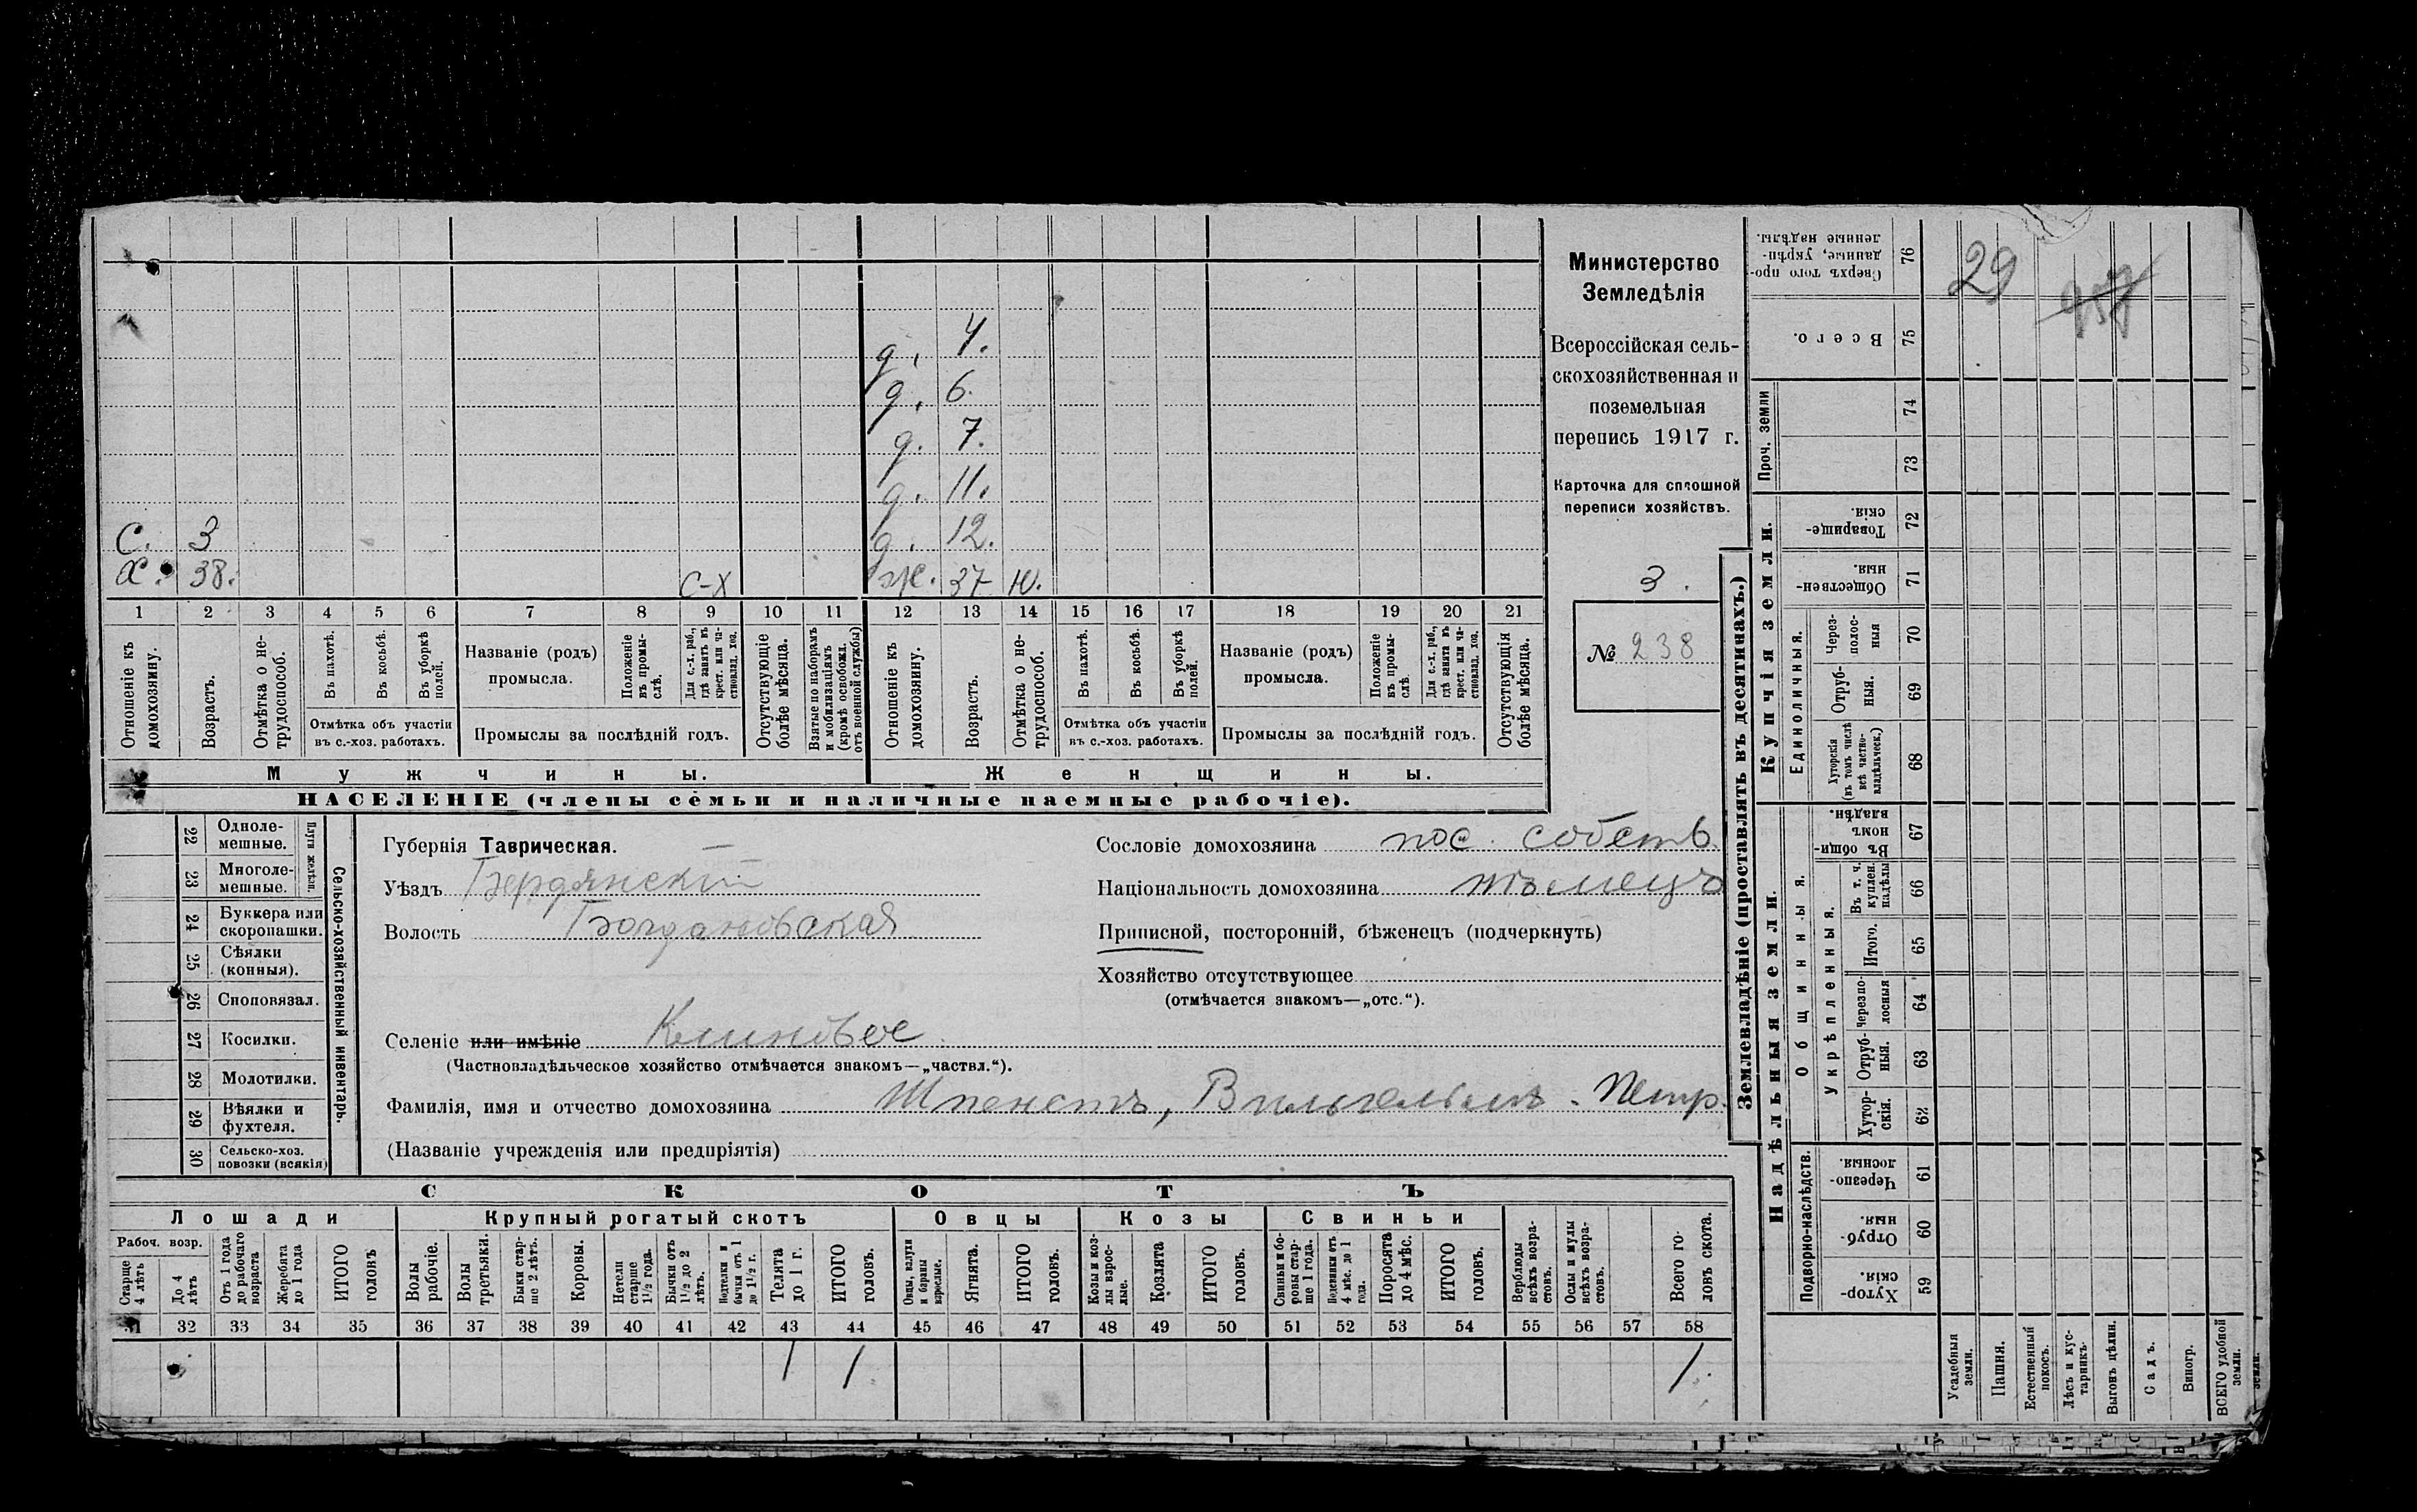 4.
д. 6.
д. 7.
д. 11.
С. 3 д. 12.
Х. 38. С-Х ж. 37 Ю.
1 2 3 4 5 6 7 8 9 10 11 12 13 14 15 16 17 18 19 20 21
Отношеніе къ домохозяину.
Возрастъ.
Отмѣтка о нетрудоспособ.
Въ пахотѣ.
Въ косьбѣ.
Въ уборкѣ полей.
Отмѣтка объ участіи
въ с.-хоз. работахъ.
Названіе (родъ)
промысла.
Положеніе въ промыслѣ.
Для с.-х. раб., гдѣ занятъ въ крест. или частновлад. хоз.
Промыслы за послѣдній годъ.
Отсутствующіе болѣе мѣсяца.
Взятые по наборамъ и мобилизаціямъ (кромѣ освобожд. отъ военной службы)
Отношеніе къ домохозяину.
Возрастъ.
Отмѣтка о нетрудоспособ.
Въ пахотѣ.
Въ косьбѣ.
Въ уборкѣ полей.
Отмѣтка объ участіи
въ с.-хоз. работахъ.
Названіе (родъ)
промысла.
Положеніе въ промыслѣ.
Для с.-х. раб., гдѣ занята въ крест. или частновлад. хоз.
Промыслы за послѣдній годъ.
Отсутствующія болѣе мѣсяца.
Мужчины.
Женщины.
НАСЕЛЕНІЕ (члены семьи и наличные наемные рабочіе).
Министерство
Земледѣлія
Всероссійская сель-
скохозяйственная и
поземельная
перепись 1917 г.
Карточка для сплошной
переписи хозяйствъ.
3.
№ 238
22 Одноле-
мешные.
23 Многоле-
мешные.
Плуги желѣзн.
24 Буккера или
скоропашки.
25 Сѣялки
(конныя).
26 Сноповязал.
27 Косилки.
28 Молотилки.
29 Вѣялки и
фухтеля.
30 Сельско-хоз.
повозки (всякія)
Сельско-хозяйственный инвентарь.
Губернія Таврическая.
Уѣздъ Бердянскій
Волость Богдановская
Селеніе или имѣніе Клиновое
(Частновладѣльческое хозяйство отмѣчается знакомъ—„частвл.“).
Фамилія, имя и отчество домохозяина Шпенстъ, Вильгельмъ. Петр.
(Названіе учрежденія или предпріятія)
Сословіе домохозяина пос. собств.
Національность домохозяина нѣмецъ
Приписной, посторонній, бѣженецъ (подчеркнуть)
Хозяйство отсутствующее
(отмѣчается знакомъ—„отс.“).
СКОТЪ
Лошади Крупный рогатый скотъ Овцы Козы Свиньи
Рабоч. возр.
Старше 4 лѣтъ
До 4 лѣтъ
Отъ 1 года до рабочаго возраста
Жеребята до 1 года
ИТОГО головъ
Волы рабочіе.
Волы третьяки.
Быки старше 2 лѣтъ.
Коровы.
Нетели старше 1½ года.
Бычки отъ 1½ до 2 лѣтъ.
Подтелки и бычки отъ 1 до 1½ г.
Телята до 1 г.
ИТОГО головъ.
Овцы, валухи и бараны взрослые.
Ягнята.
ИТОГО головъ.
Козы и козлы взрослые.
Козлята
ИТОГО головъ.
Свиньи и боровы старше 1 года.
Подсвинки отъ 4 мѣс. до 1 года.
Поросята до 4 мѣс.
ИТОГО головъ.
Верблюды всѣхъ возрастовъ.
Ослы и мулы всѣхъ возрастовъ.
Всего головъ скота.
31 32 33 34 35 36 37 38 39 40 41 42 43 44 45 46 47 48 49 50 51 52 53 54 55 56 57 58
1 1 1.
Землевладѣніе (проставлять въ десятинахъ.)
Надѣльныя земли.
Купчія земли.
Проч. земли
Подворно-наслѣдств.
Общинныя.
Укрѣпленныя.
Единоличныя.
Сверхъ того проданные, укрѣпленные надѣлы. 76
Всего. 75
74
73
Товарищескія. 72
Общественныя. 71
Черезполосныя 70
Отрубныя. 69
Хуторскія (въ томъ числѣ всѣ частновладѣльческ.) 68
Въ общинномъ владѣн. 67
Въ т. ч. куплен. надѣлы 66
Итого. 65
Черезполосныя 64
Отрубныя. 63
Хуторскія. 62
Черезполосныя. 61
Отрубныя. 60
Хуторскія. 59
Усадебныя земли.
Пашня.
Естественный покосъ.
Лѣсъ и кустарникъ.
Выгонъ цѣлин.
Садъ.
Виногр.
ВСЕГО удобной земли.
29
957